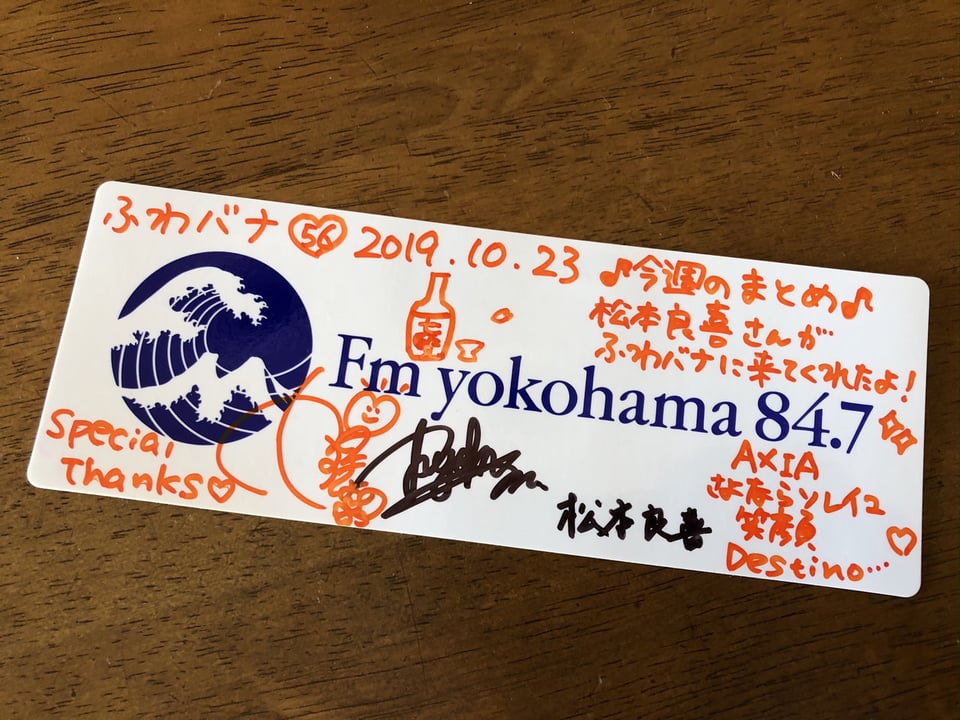 ふわバナ 56 2019.10.23
♪今週のまとめ♪
松本良喜さんが
ふわバナに来てくれたよ!
Fm yokohama 84.7
Special
Thanks♡
松本良喜
AXIA
さよならソレイユ
笑顔
Destino…